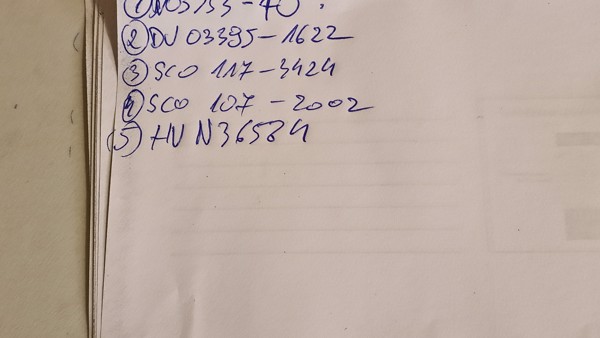 ① NO5753-40.
② DV 03395-1622
③ SCO 117-3424
④ SCO 107-2002
⑤ HV N36584